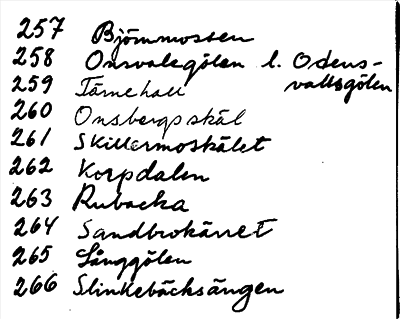 257 Björnmossen
258 Onsvalegölen l. Odens-
vallsgölen
259 Tärnehall
260 Onsbergsskäl
261 Skillermoskälet
262 Korpdalen
263 Rubacka
264 Sandbrokärret
265 Långgölen
266 Slinkebäcksängen